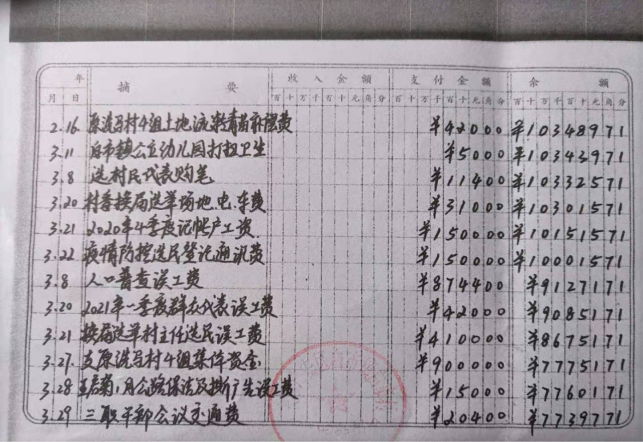 年 摘 要 收 入 金 额 支 付 金 额 余 额
月 日 百 十 万 千 百 十 元 角 分 百 十 万 千 百 十 元 角 分 百 十 万 千 百 十 元 角 分
2.16 原洗马村4组土地流转青苗补偿费 ¥42000 ¥10348971
3.11 市镇公立幼儿园打扫卫生 ¥5000 ¥10343971
3.8 选村民代表购笔 ¥11400 ¥10332571
3.20 村委换届选举场地、电、车费 ¥31000 ¥10301571
3.21 2020年4季度记帐户工资 ¥150000 ¥10151571
3.22 疫情防控选民登记通讯费 ¥150000 ¥10001571
3.8 人口普查误工费 ¥874400 ¥9127171
3.20 2021年一季度群众代表误工费 ¥42000 ¥9085171
3.21 换届选举村主任选民误工费 ¥410000 ¥8675171
3.27 支原洗马村4组集体资金 ¥900000 ¥7775171
3.28 王启菊1月公路保洁及撕广告误工费 ¥15000 ¥7760171
3.29 三职干部会议交通费 ¥20400 ¥7739771